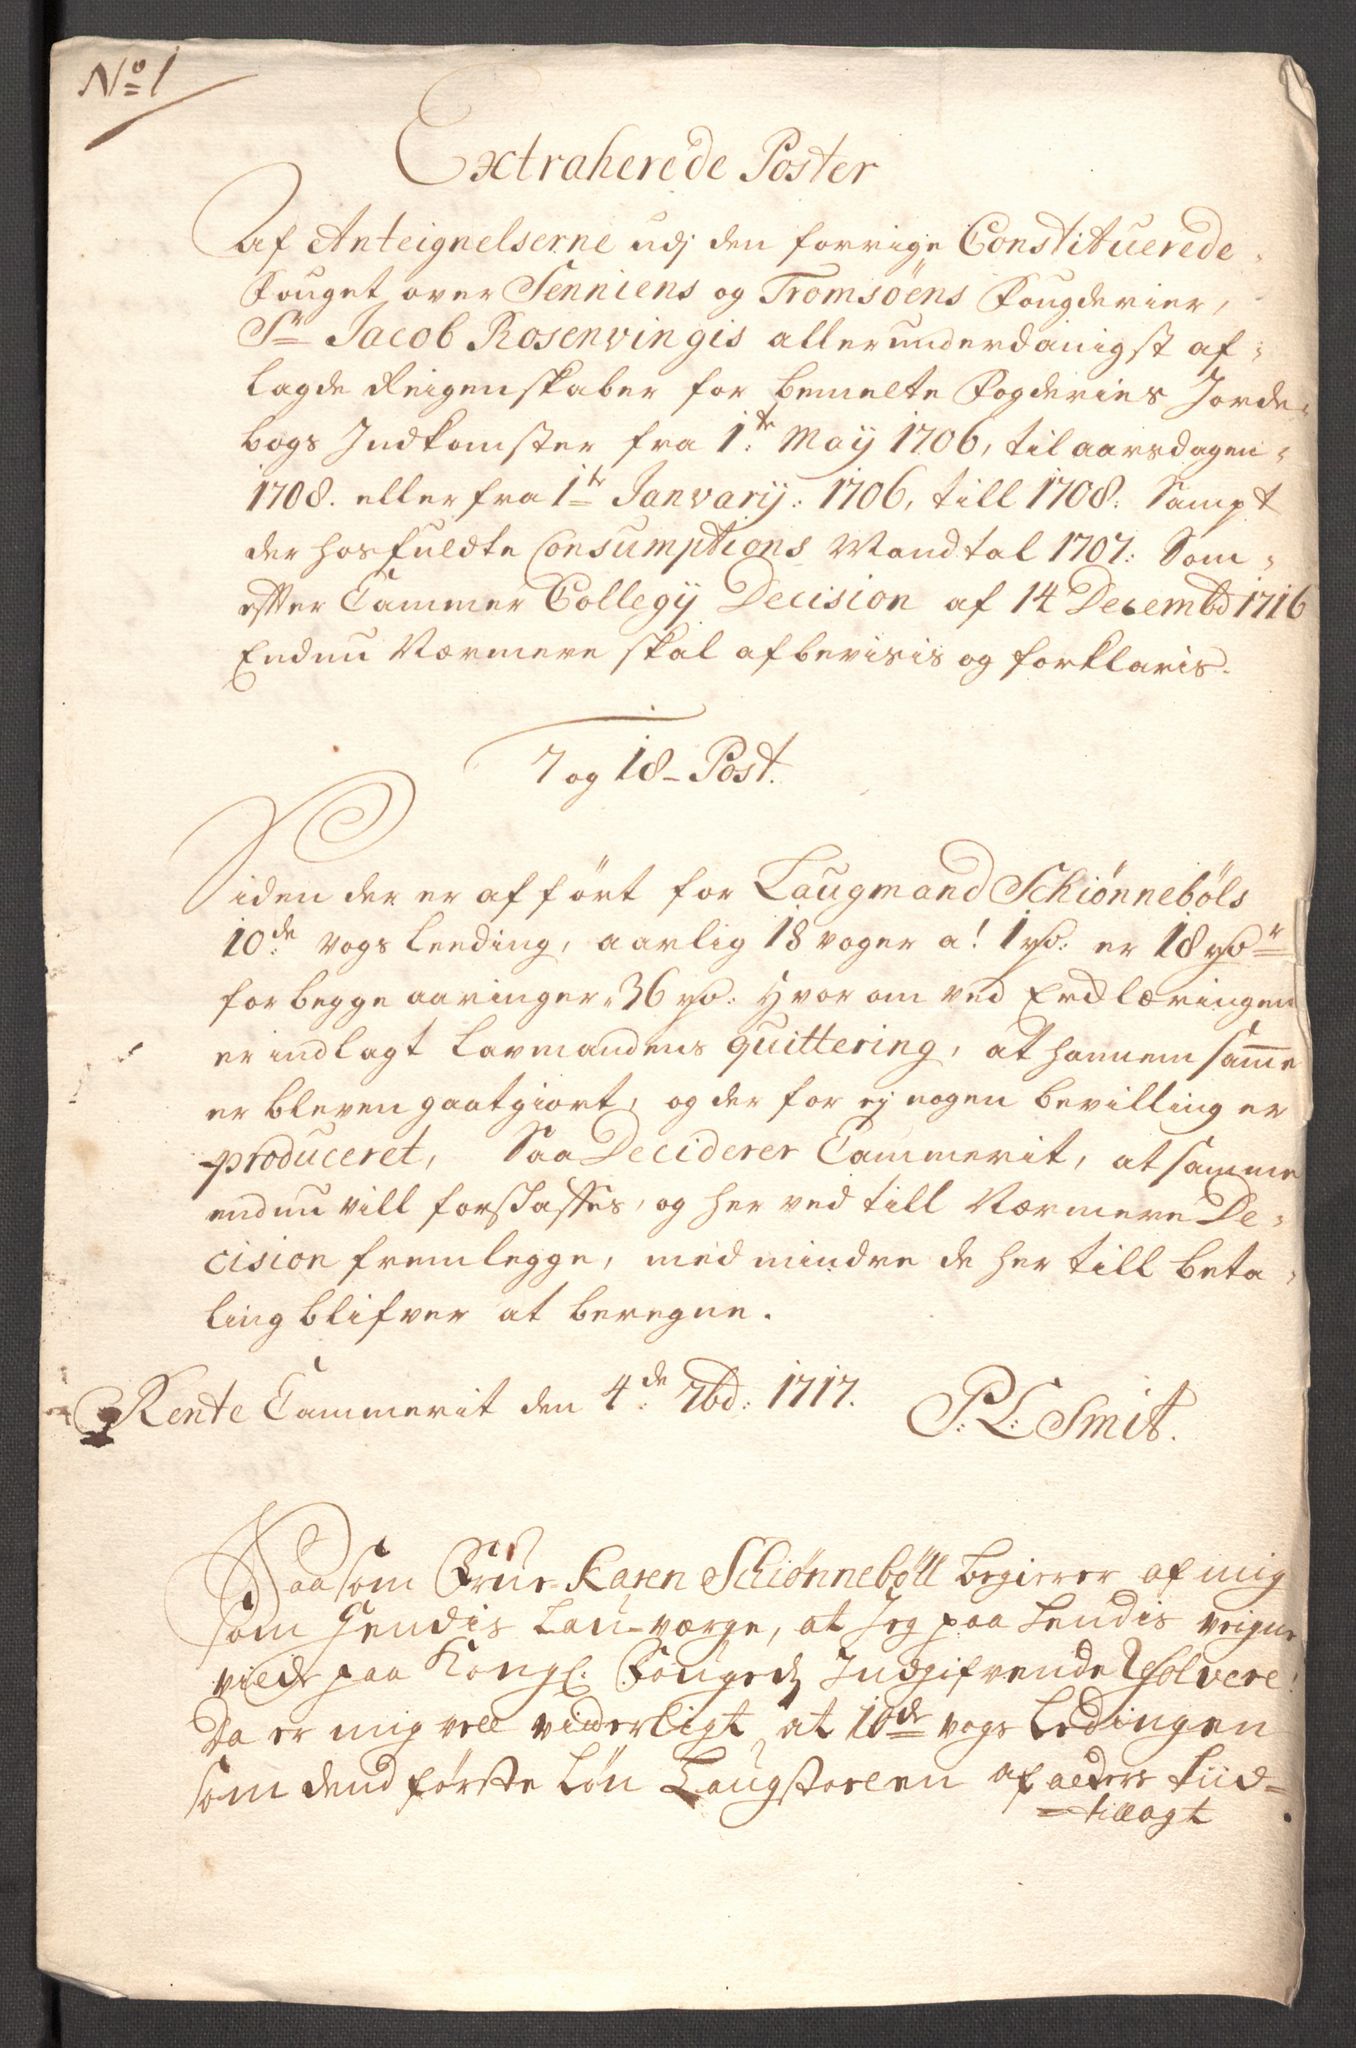 No 1
Extraherede Poster
Af Anteignelserne udj den forrige Constituerede
Fouget over Senniens og Tromsöens Fougderier,
Sr Jacob Rosenvingis allerunderdanigst af-
lagde Reigenskaber for bemelte Fogderies Jorde-
bogs Indkomster fra 1te Maij 1706, til aarsdagen
1708. eller fra 1te Janvarij: 1706, till 1708. Sampt
der hosfuldte Consumptions Mandtal 1707: Som
efter Cammer Collegij Decision af 14 Decembd 1716
Endnu Nærmere skal afbevisis og forklaris.
7 og 18 Post.
Siden der er afført for Laugmand Schiønnebøls
10de vogs Leeding, aarlig 18 voger a! 1 rdr: er 18 rdr
for begge aaringer, 36 rdr: Hvorom ved Erdlæringen
er indlagt Lavmandens quittering, at hannem samme
er bleven gaatgiort, og der for ej nogen bevilling er
produceret, Saa Deciderer Cammerit, at samme
endnu vill forskaffes, og her ved till Nærmere De-
cision fremlegge, med mindre de her till beta-
ling blifver at beregne.
Rente Cammerit den 4de 7bd: 1717. P: L: Smit.
Saasom Frue Karen Schiønnebøll begierer af mig
som hendis Lau-værge, at Jeg paa hendis veigne
vilde paa Kongl. Fougeds Indgifvende svare!
Da er mig vell viderligt, at 10de vogs Ledingen
som dend første Løn Laugstolen af alders tiid
tillagt